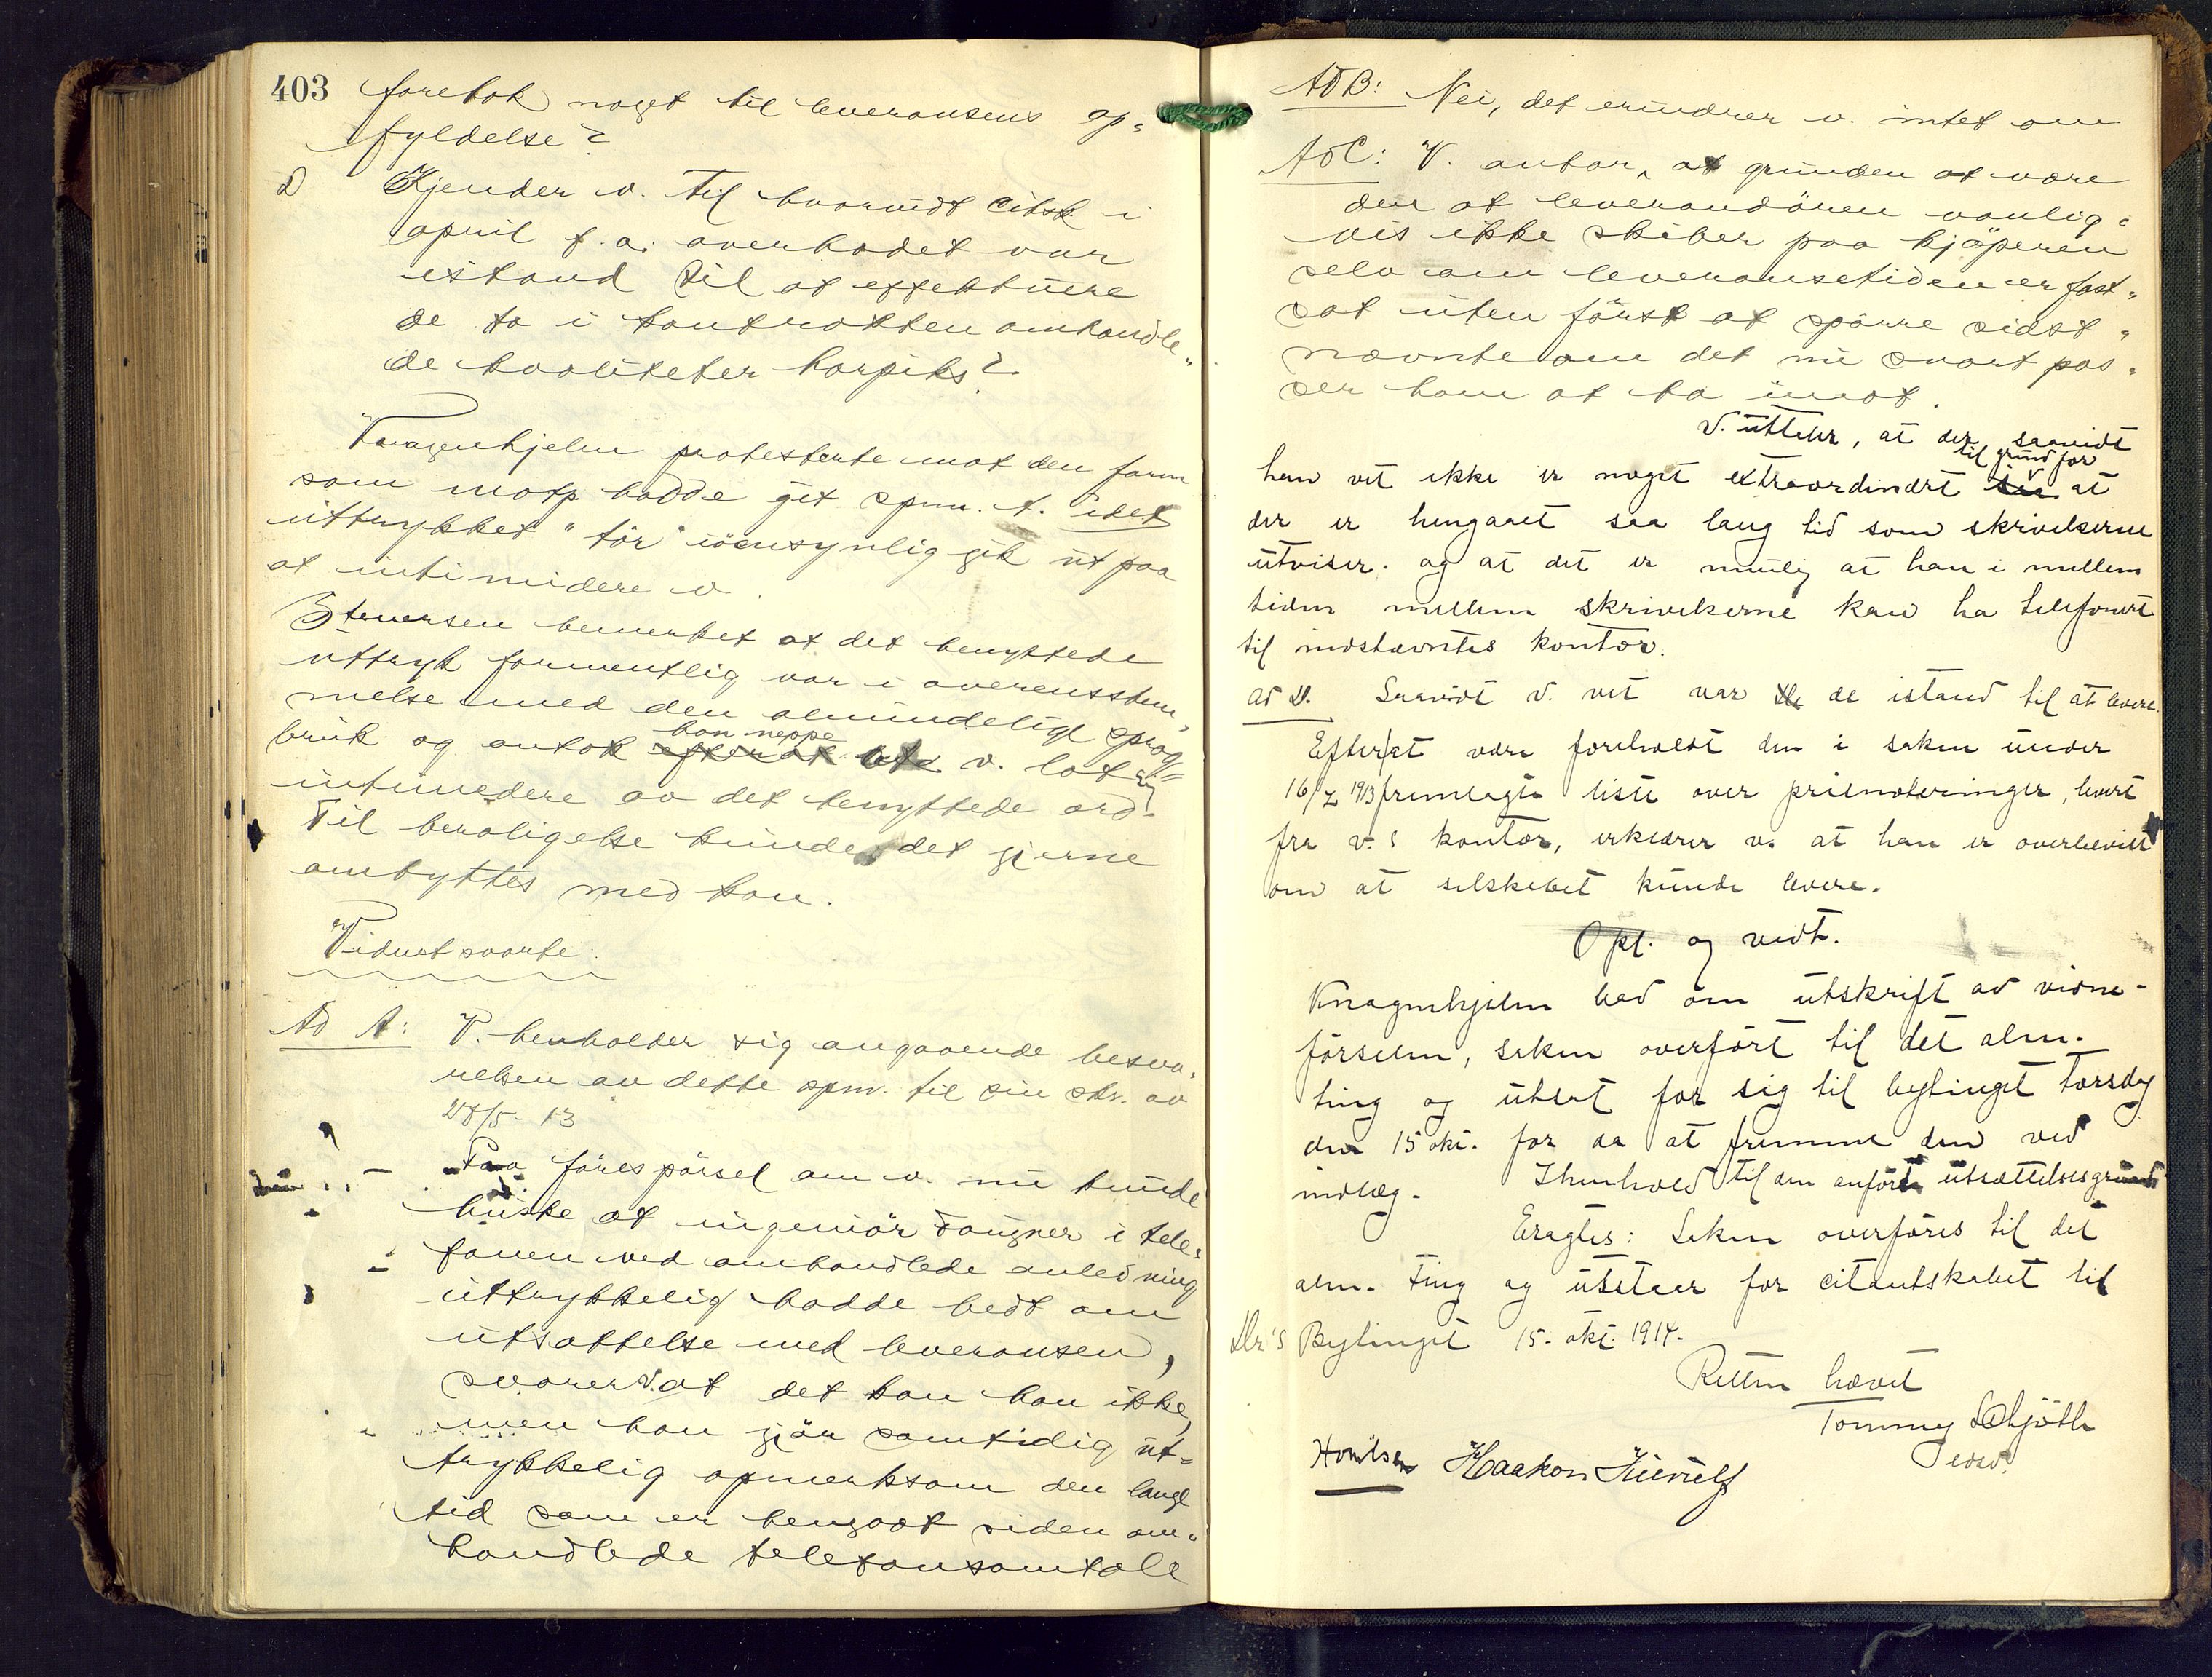 403
foretok noget til leveransens op-
fyldelse?
D Kjender v. til hvorvidt citsk. i
april f.a. overhodet var
istand til at effektuere
de to i kontrakten omhandle-
de kvaliteter harpiks?
Knagenhjelm protesterte mot den form
som motp. hadde git spm. A. idet
uttrykket "tör" iöiensynlig gik ut paa
at intimidere v.
Stenersen bemerket at det benyttede
uttryk formentlig var i overensstem-
melse med den almindelige sprog-
bruk og antok kan neppe v. lot sig
intimedere av det benyttede ord.
Til beroligelse kunde det gjerne
ombyttes med kan.
Vidnet svarte:
Ad A: V. henholder sig angaaende besva-
relsen av dette spm. til sin skr. av
28/5-13
Paa forespörsel om v. nu kunde
huske at ingeniör Fougner i tele-
fonen ved omhandlede anledning
uttrykkelig hadde bedt om
utsættelse med leveransen,
svarer v. at det kan han ikke,
men han gjör samtidig ut-
trykkelig opmerksom den lange
tid som er hengaat siden om-
handlede telefonsamtale
Ad B: Nei, det erindrer v. intet om
Ad C: V. antar, at grunden at være
den at leverandören vanlig-
vis ikke skiber paa kjöperen
selv om leveransetiden er fast-
sat uten först at spörre sidst-
nævnte om det nu snart pas-
ser ham at ta imot.
V. uttaler, at der saavidt
han vet ikke er noget extraordinært til grund for at
der er hengaaet saa lang tid som skrivelserne
utviser. og at det er mulig at han i mellem
tiden mellem skrivelserne kan ha telefonert
til indstævntes kontor.
ad D. Saavidt v. vet var de istand til at levere.
Efter at være foreholdt den i saken under
16/7 1913 fremlagte liste over prisnoteringer, levert
fra v.s kontor, erklærer v. at han er overbevist
om at selskabet kunde levere.
Opl. og vedt.
Knagenhjelm bad om utskrift av vidne-
förselen, saken overfört til det alm.
ting og utsat for sig til bytinget torsdag
den 15 okt. for da at fremme den ved
indlæg. I henhold til den anförte utsættelsesgrund
Eragtes: Saken overföres til det
alm. Ting og utstaar for citantskabet til
Bytinget 15. okt. 1914.
Retten hævet
Tommy Schjöth
edsv.
Haakon